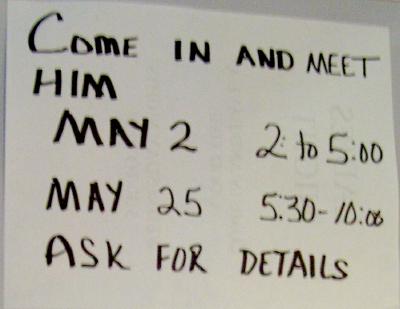 COME IN AND MEET
HIM
MAY 2 2: to 5:00
MAY 25 5:30-10:00
ASK FOR DETAILS